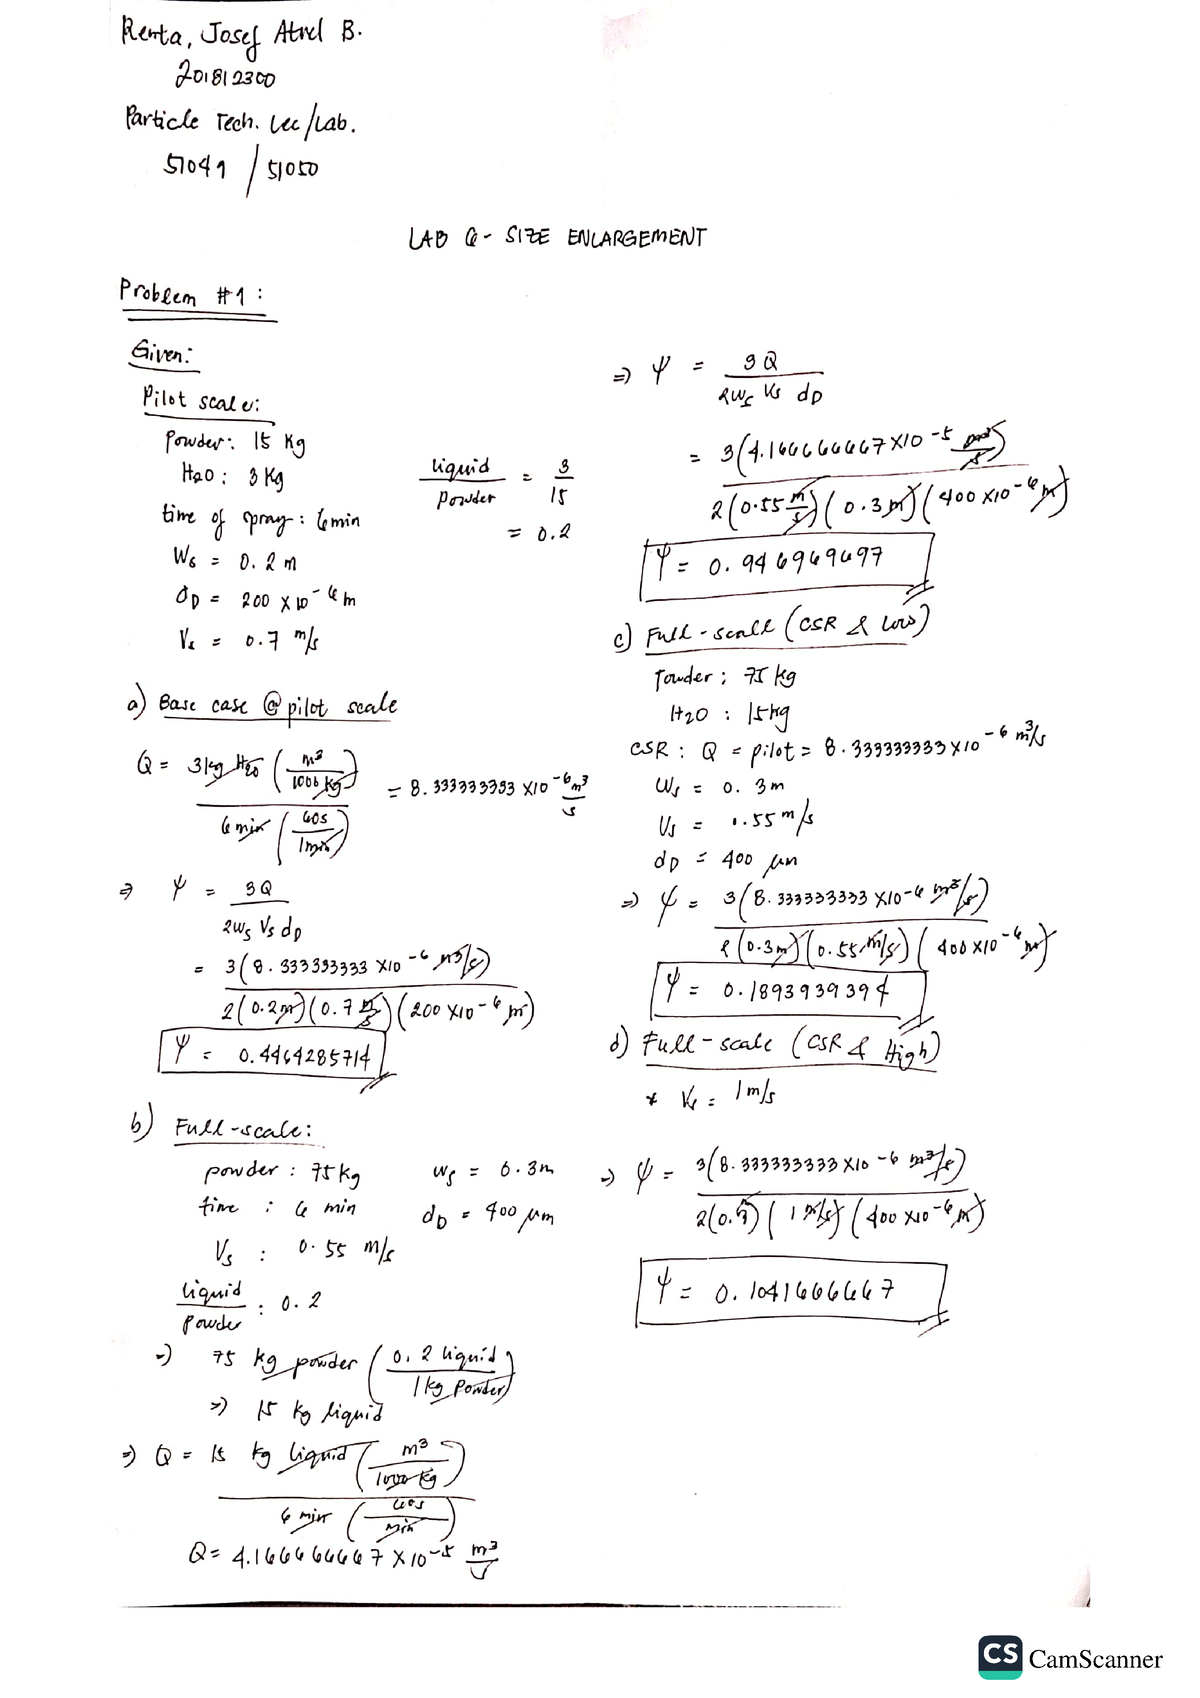 Renta, Josef Atrel B.
201812300
Particle Tech. Lec/Lab.
51049 / 51050
LAB 6 - SIZE ENLARGEMENT
Problem #1:
Given:
Pilot scale:
Powder: 15 kg
H2O: 3 kg
time of spray: 6 min
Ws = 0.2 m
dD = 200 x 10^-6 m
Vs = 0.7 m/s
liquid / powder = 3 / 15
= 0.2
a) Base case @ pilot scale
Q = 3 kg H2O (m³ / 1000 kg) / 6 min (60s / 1 min) = 8.333333333 x10^-6 m³/s
=> Ψ = 3Q / 2Ws Vs dD
= 3(8.333333333 x10^-6 m³/s) / 2(0.2m)(0.7 m/s)(200 x10^-6 m)
Ψ = 0.4464285714
b) Full-scale:
powder: 75 kg
time : 6 min
Vs : 0.55 m/s
liquid / Powder : 0.2
ws = 0.3m
dD = 400 μm
=> 75 kg powder (0.2 liquid / 1 kg Powder)
=> 15 kg liquid
=> Q = 15 kg liquid (m³ / 1000 kg) / 6 min (60s / min)
Q = 4.166666667 x 10^-5 m³/s
=> Ψ = 3Q / 2Ws Vs dD
= 3(4.166666667 x10^-5 m³/s) / 2(0.55 m/s)(0.3 m)(400 x10^-6 m)
Ψ = 0.946969697
c) Full-scale (CSR & Low)
Powder: 75 kg
H2O : 15kg
CSR : Q = pilot = 8.333333333 x10^-6 m³/s
Ws = 0.3m
Vs = 0.55 m/s
dD = 400 μm
=> Ψ = 3(8.333333333 x10^-6 m³/s) / 2(0.3m)(0.55 m/s)(400 x10^-6 m)
Ψ = 0.1893939394
d) Full-scale (CSR & High)
* Vs = 1 m/s
=> Ψ = 3(8.333333333 x10^-6 m³/s) / 2(0.3)(1 m/s)(400 x10^-6 m)
Ψ = 0.1041666667
CS CamScanner